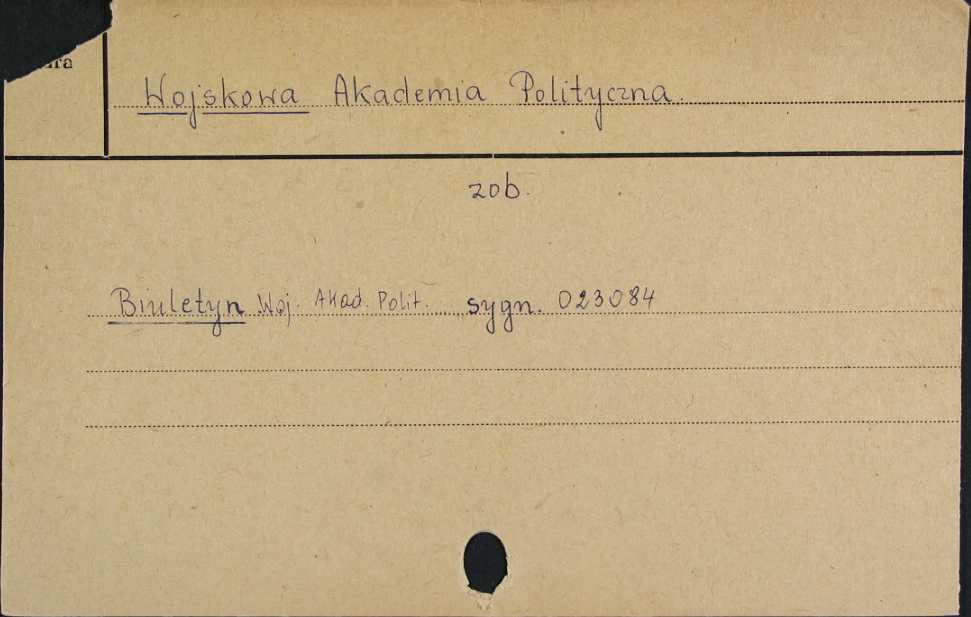 Wojskowa Akademia Polityczna.
zob.
Biuletyn Woj. Akad. Polit. sygn. 023084